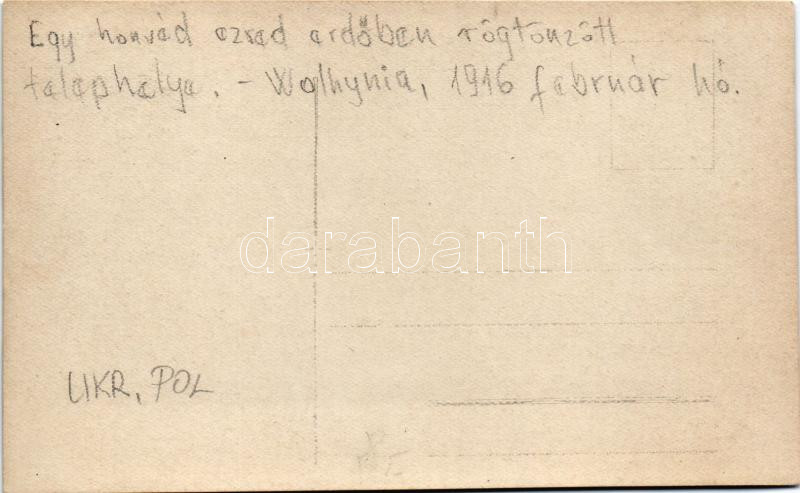 Egy honvéd ezred erdőben rögtönzött
telephelye. - Wolhynia, 1916 február hó.
darabanth
UKR, POL